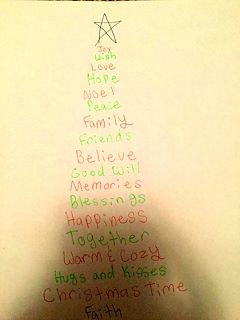 Joy
Wish
Love
Hope
Noel
Peace
Family
Friends
Believe
Good Will
Memories
Blessings
Happiness
Together
Warm & Cozy
Hugs and Kisses
Christmas Time
Faith